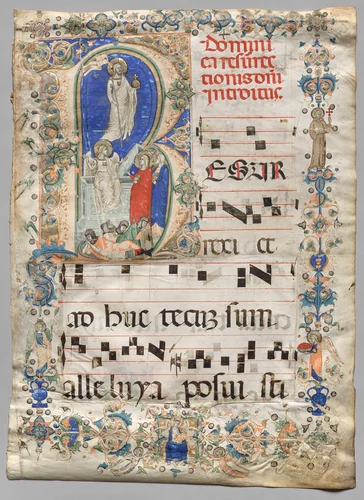 Domini
ca resurre
ctionis dni
introitus
R
ESVR
rexi et
ad huc tecuz sum.
alleluya posui sti